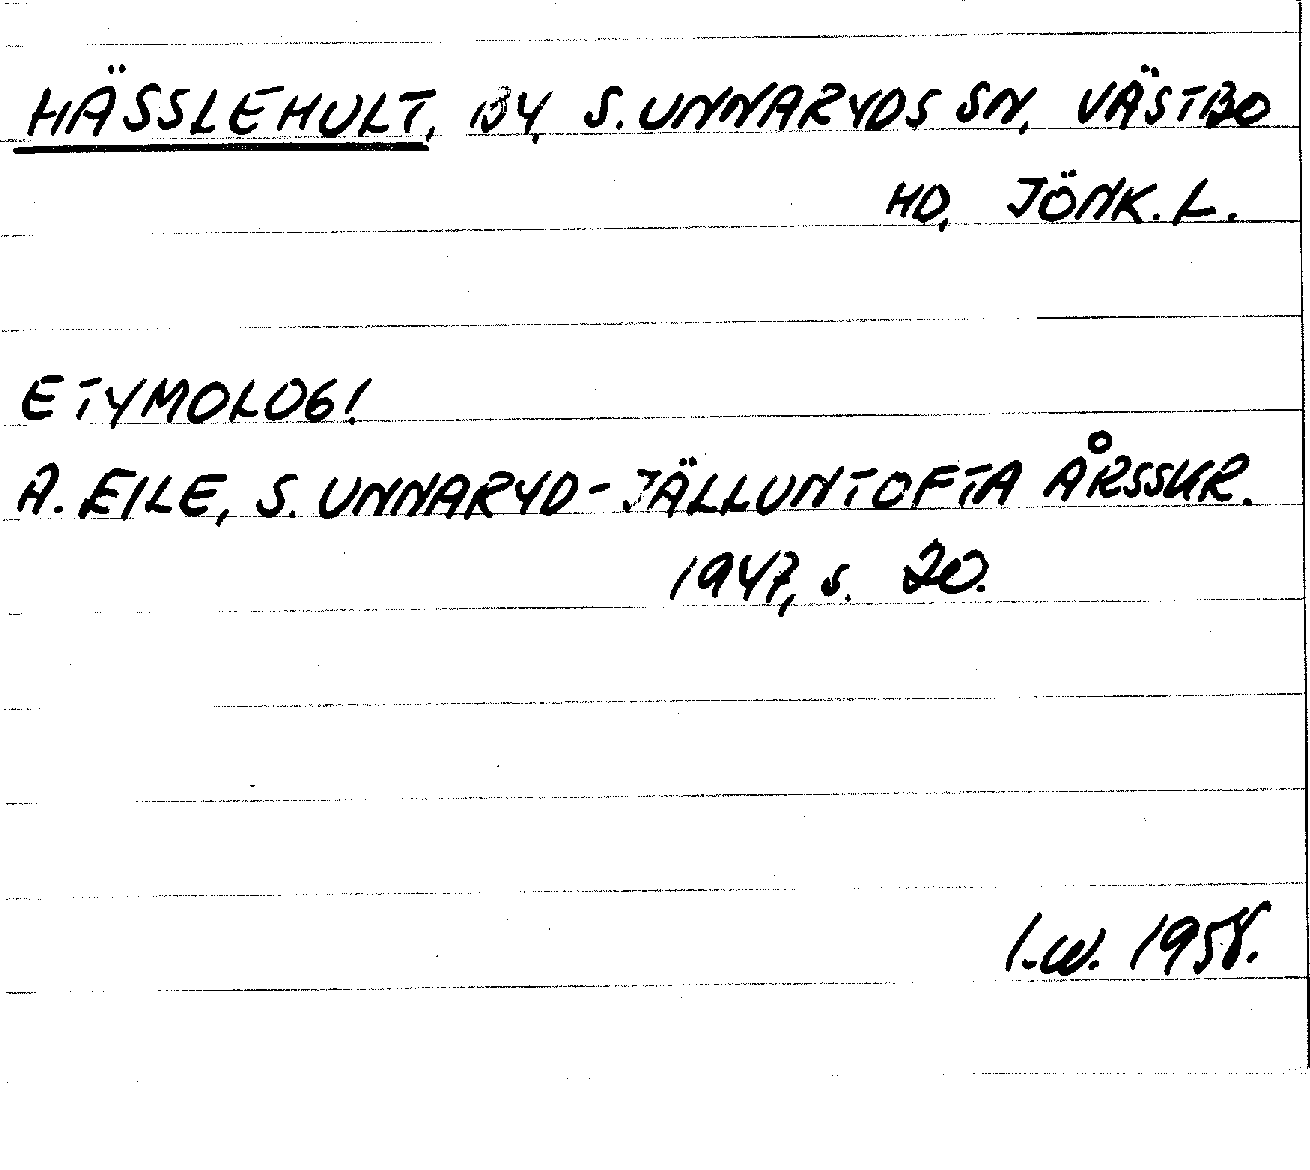 HÄSSLEHULT, BY, S. UNNARYDS SN, VÄSTBO
HD, JÖNK. L.
ETYMOLOGI
A. EILE, S. UNNARYD-JÄLLUNTOFTA ÅRSSKR.
1947, s. 20.
I.W. 1958.